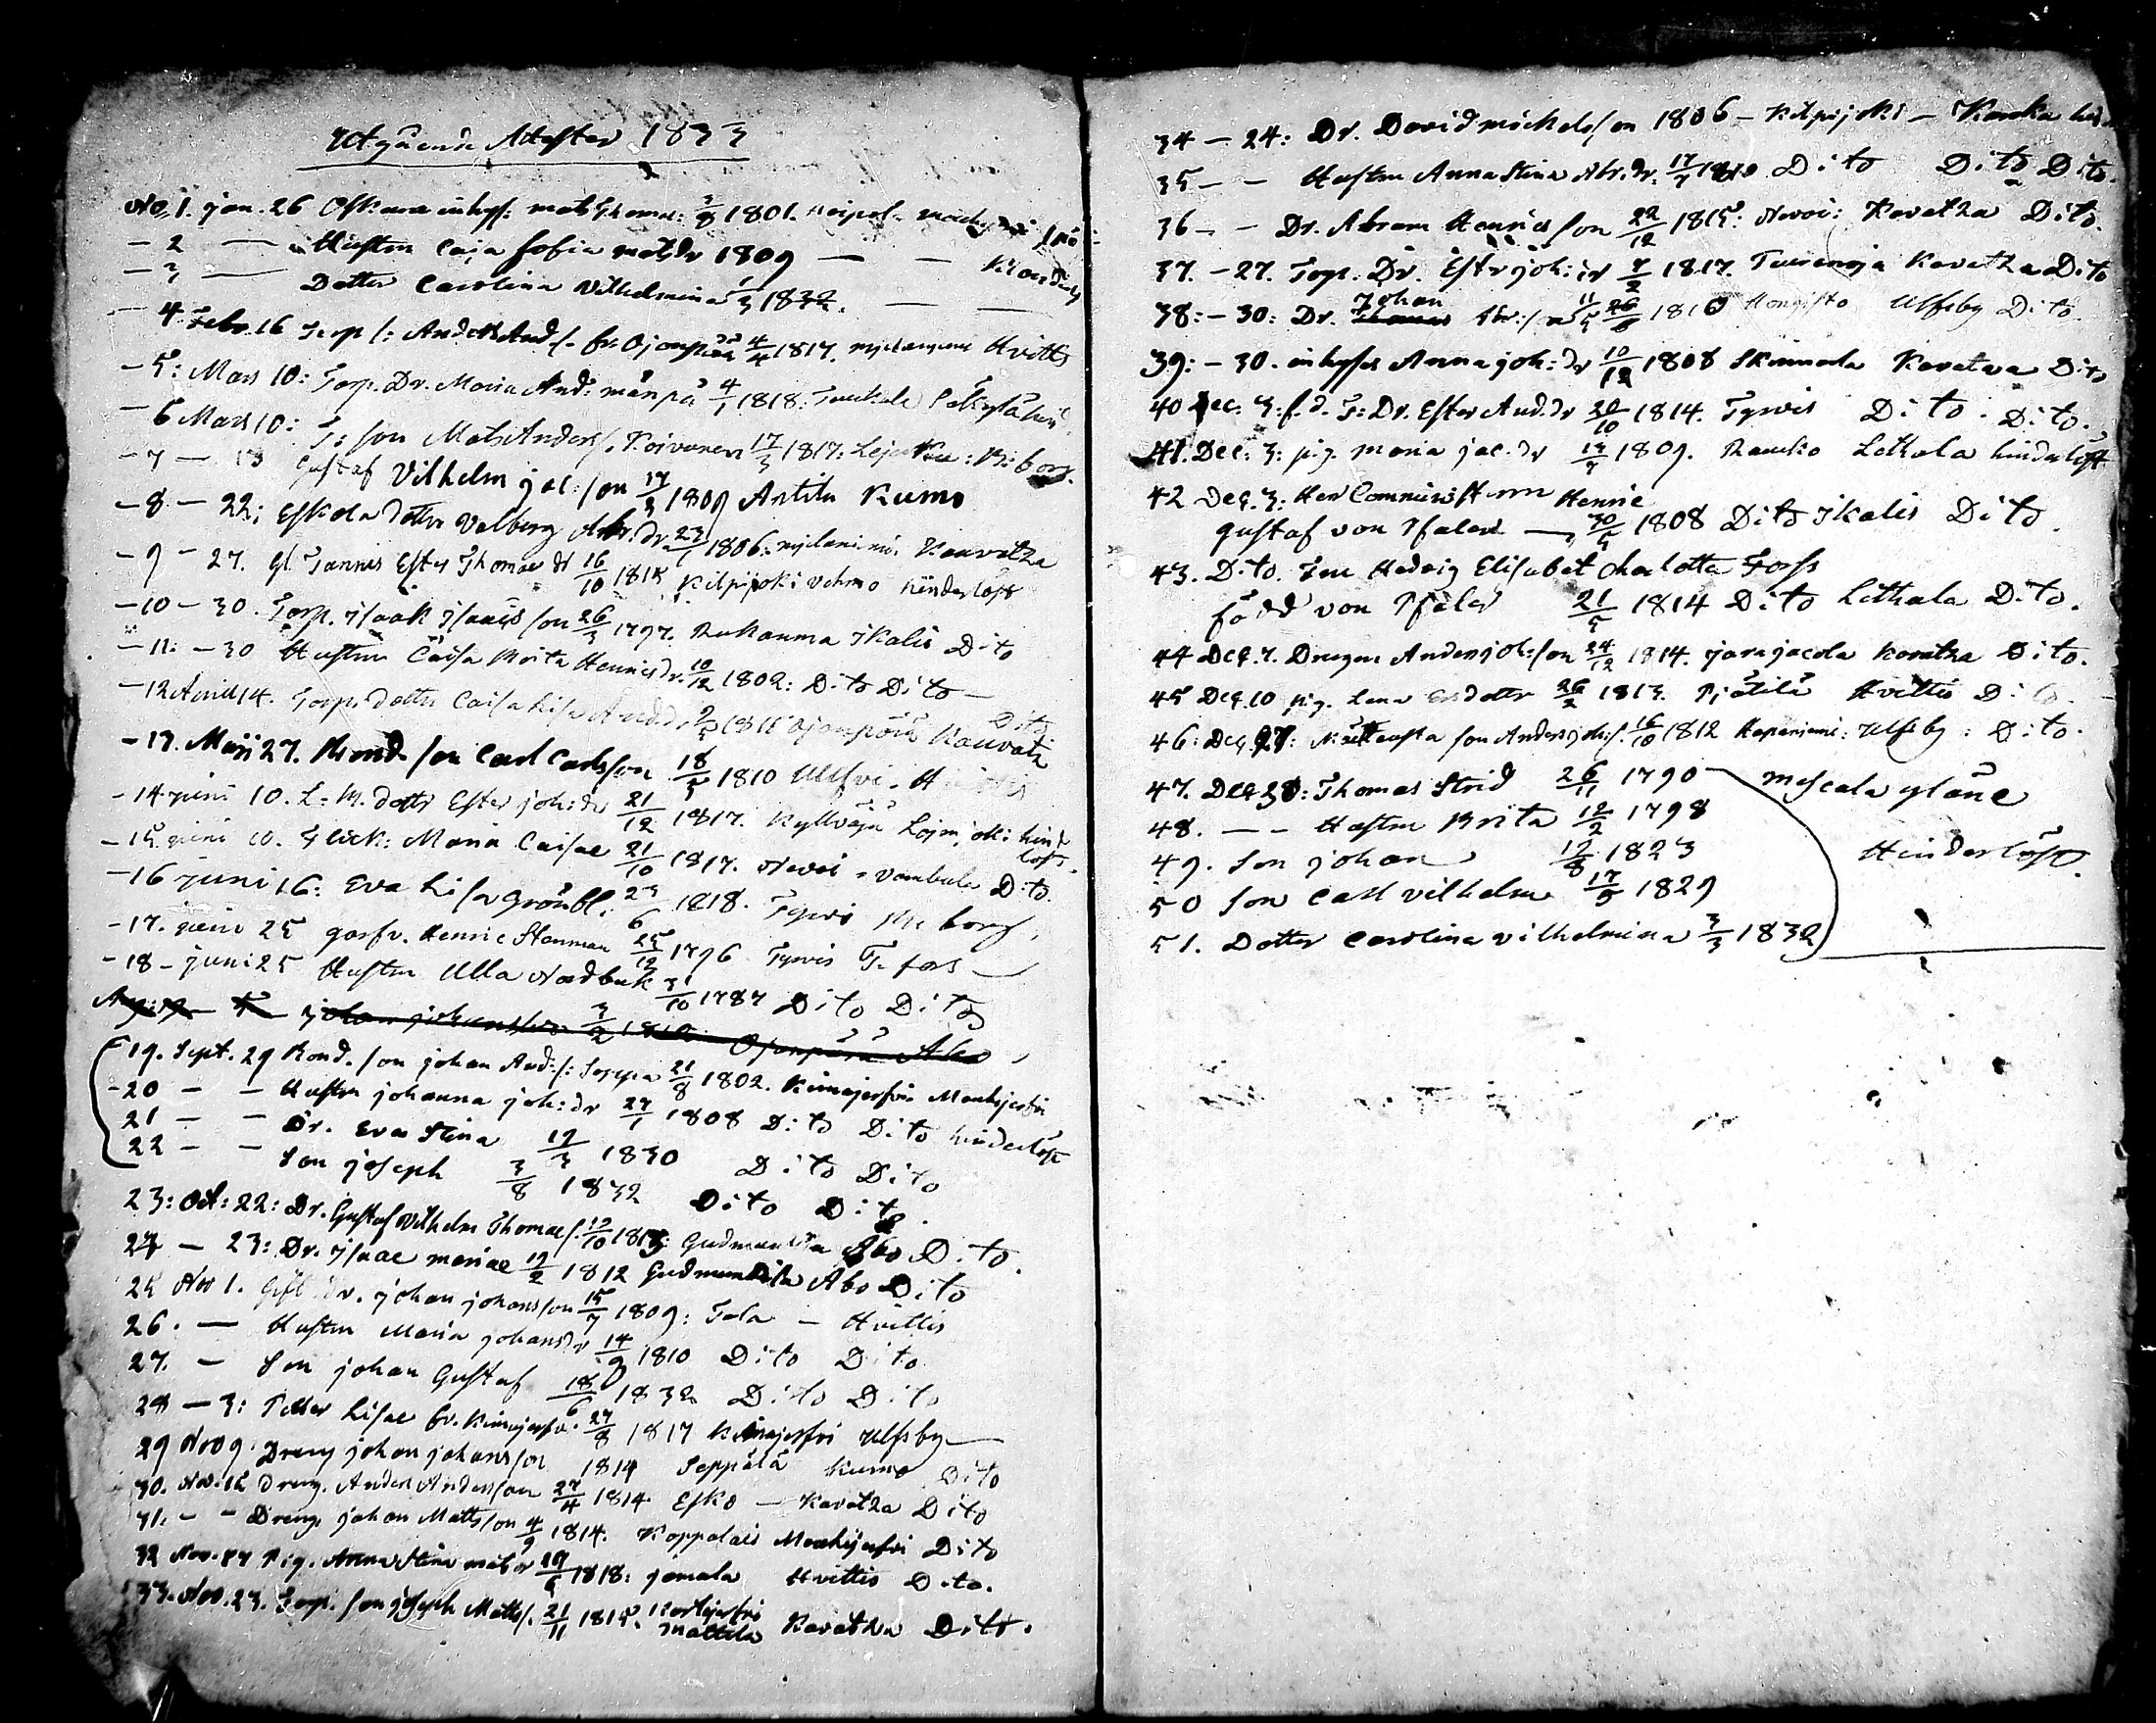 Utgående Attester 1833
No 1. jan. 26 inhys: mats Thomae: 3/8 1801.
- 2 — Hustru Caja Sofia matsdr 1809 — —
- 3 — Dotter Carolina Vilhelmina 3/3 1832. — —
- 4 Febr. 16 Torp s: Anders And/s. fr. Ojanpää 4/4 1817. Hvittis
- 5: Mars 10: Torp. Dr. Maria And: 4/1 1818:
- 6 Mars 10: T: son Mats Anders/. Koivunen 17/3 1817:
- 7 — 13 Gustaf Vilhelm jac:son 17/3 1809 Antila Kumo
- 8 - 22: Eskola dotter Valborg Abr. dr. 23/1 1806: Kauvatza
- 9 - 27. Gl. Tannis Ester Thomae dr 16/10 1815 Kilpijoki Vehmo hinderlöst
- 10 - 30. Torp. Isaak Isaacsson 26/3 1797. Rukanma Ikalis Dito
- 11: - 30 Hustru Caisa Brita Henricsdr. 10/12 1802: Dito Dito —
Dito
- 12 April 14. Torpe dotter Caisa Lisa And.dr 1815 Ojanpää Kauvatz
- 13. Maji 27. Bond. son Carl Carlsson 18/5 1810
- 14 juni 10. L: M. dottr Ester joh:dr 21/12 1817. Kyllvöjä Loimjoki hind
löst.
- 15 juni 10. Flick: Maria Caisae 21/10 1817. Nevoi - Vambula Dito.
- 16 juni 16: Eva Lisa Grönbl. 23/6 1818. Tyrvis
- 17. juni 25 Henric Stenman 25/12 1796 Tyrvis T. fors
- 18 - juni 25 Hustru Ulla Nordbäck 31/10 1787 Dito Dito
johan johansson 3/2 Ojanpää Åbo
19. Sept. 29 Bond. son johan And:s: Seppä 21/8 1802. Kiimajerfvi Mouhijerfvi
- 20 - - Hustru johanna joh:dr 27/1 1808 Dito Dito hinderlöst
21 - - Dr. Eva Stina 17/3 1830 Dito Dito
22 - - Son joseph 3/8 1832 Dito Dito.
23: Oct: 22: Dr. Gustaf Vilhelm Thomae s. 12/10 1813: Gudmundila Åbo Dito.
24 - 23: Dr. Isaac mariae 17/2 1812 Gudmundila Åbo Dito
25 Nov 1. Gift Dr. johan johansson 15/7 1809: Tola — Hvittis
26. — Hustru Maria johansdr 14/9 1810 Dito Dito
27. — Son johan Gustaf 18/6 1832 Dito Dito
28 — 3: Petter Lisae fr. Kiimajerfvi 27/8 1817 Kiimajerfvi Ulfsby —
29 Nov 9. Dreng johan johansson 1814 Seppälä Kumo Dito
30. Nov. 12 Dreng. Anders Andersson 27/4 1814 Esko — Kavatza Dito
31. - - Dreng. johan Mattsson 4/9 1814. Koppalais Mouhijerfvi Dito
32 Nov. 17 Pig. Anna Stina matsdr 29/6 1818: jamala Hvittis Dito.
33. Nov. 23. Torp. son joseph Matts. 21/11 1815. Mattila Kavatza Dito.
34 — 24: Dr. David mickelsson 1806 — Kilpijoki —
35 - - Hustru Anna Stina Abr. dr. 17/7 1810 Dito Dito Dito.
36 - - Dr. Abram Henricsson 22/12 1815: Nevoi: Kavatza Dito.
37. - 27. Torp. Dr. Estr joh:dr 7/2 1817. Kavatza Dito
38: - 30: Dr. Johan Thomas Abr:son 11/5 26/6 1810 Hongisto Ulfsby Dito.
39: - 30. inhyses Anna joh:dr 10/12 1808 Skinnala Kavatza Dito
40 Dec. 3: f.d. T: Dr. Ester And.dr 20/10 1814. Tyrvis Dito. Dito.
41. Dec: 3: pig. maria jac. dr 1809. Rauko Lethala hinderlöst
42 Dec. 3: Henric
Gustaf von Pfaler — 30/5 1808 Dito Ikalis Dito.
43. Dito. Fru Hedvig Elisabet Charlotta Forss
född von Pfaler 21/5 1814 Dito Lethala Dito.
44 Dec. 7. Drengen Anders joh:son 24/12 1814. jarajacola Kavatza Dito.
45 Dec. 10 pig. Lena dottr 26/2 1813. Pjätilä Hvittis Dito.
46: Dec. 27: son Anders joh:s. 16/10 1812 Haponiemi: Ulfsby: Dito.
47. Dec 30: Thomas Strid 26/11 1790
48. - - Hustru Brita 12/2 1798
49. Son johan 12/8 1823
50 Son Carl Vilhelm 17/5 1829
51. Dotter Carolina Vilhelmina 3/3 1832
Hinderlöst.